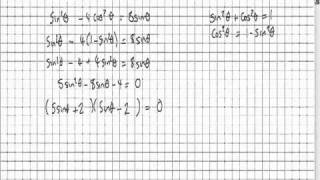 sin²θ - 4cos²θ = 8sinθ
sin²θ - 4(1-sin²θ) = 8sinθ
sin²θ - 4 + 4sin²θ = 8sinθ
5sin²θ - 8sinθ - 4 = 0
(5sinθ + 2)(sinθ - 2) = 0
sin²θ + cos²θ = 1
cos²θ = -sin²θ